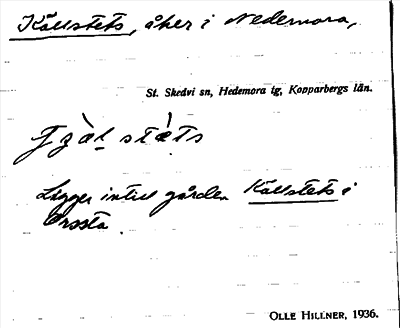 Källstets, åker i Nedernora,
St. Skedvi sn, Hedemora tg, Kopparbergs län.
Ligger intill gården Källstets i
Orssta.
OLLE HILLNER, 1936.